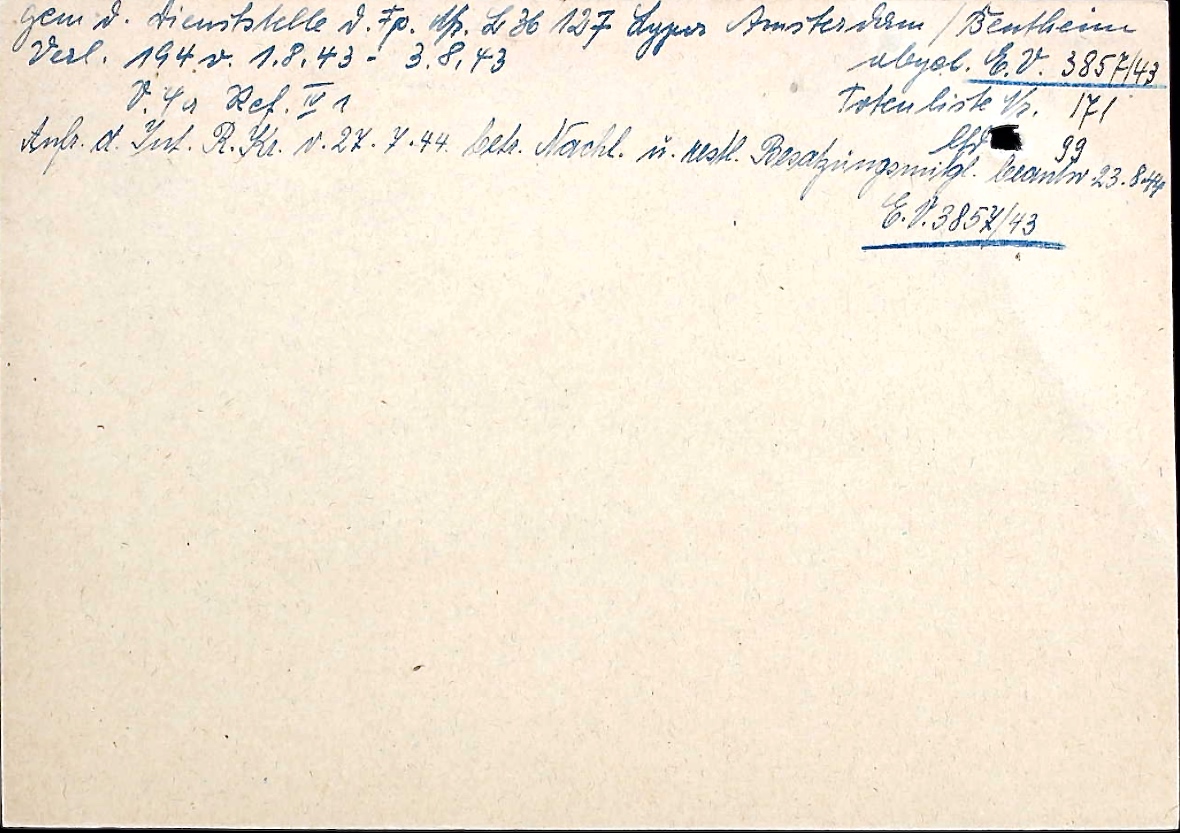 gem d. Dienststelle d. Fp. Nr. L 36 127 Lgpa Amsterdam / Bentheim
Verl. 194 v. 1.8.43 - 3.8.43 abgel. E.V. 3857/43
V. 4a Ref. IV 1 Totenliste Nr. 171
lfd 99
Anfr. d. Int. R. Kr. v. 27.7.44 betr. Nachl. u. restl. Besatzungsmitgl. beantw. 23.8.44
E.V. 3857/43